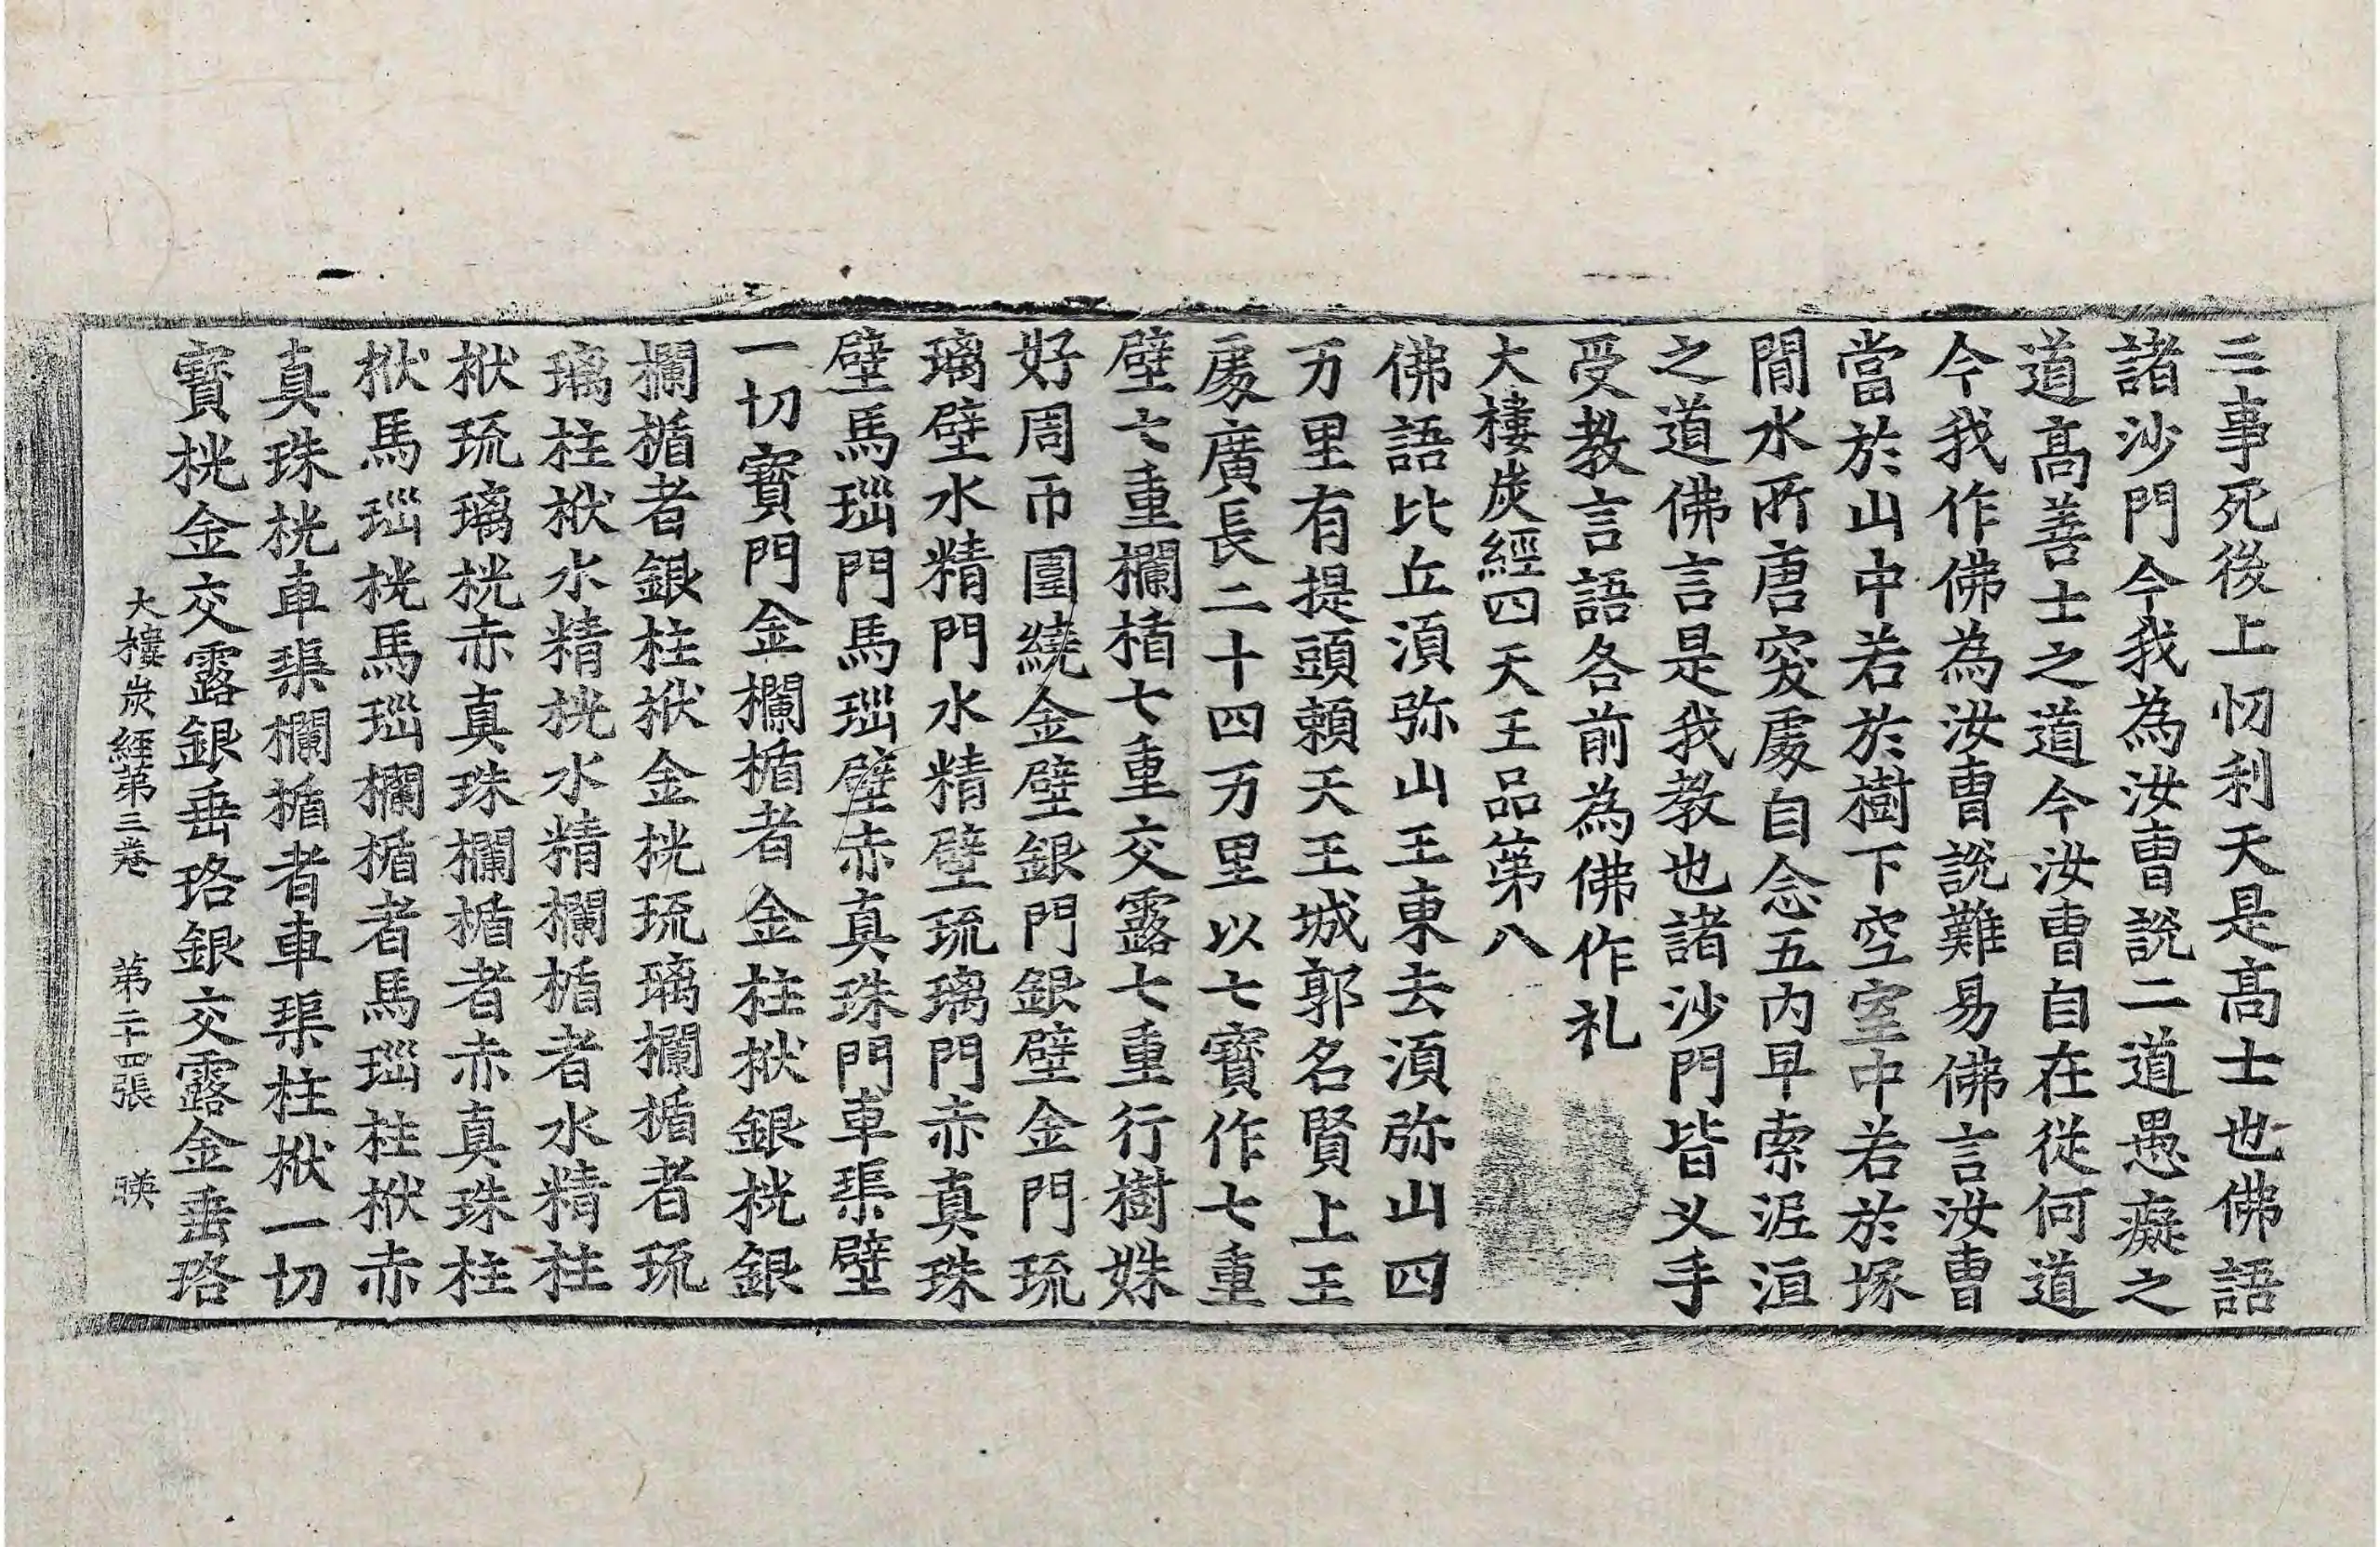 三事死後上忉利天是高士也佛語
諸沙門今我為汝曹說二道愚癡之
道高善士之道今汝曹自在從何道
今我作佛為汝曹說難易佛言汝曹
當於山中若於樹下空室中若於塚
閒水所唐突處自念五內早索泥洹
之道佛言是我教也諸沙門皆叉手
受教言語各前為佛作礼
大樓炭經四天王品第八
佛語比丘湏弥山王東去湏弥山四
万里有提頭賴天王城郭名賢上王
處廣長二十四万里以七寶作七重
壁七重欄楯七重交露七重行樹姝
好周帀圍繞金壁銀門銀壁金門琉
璃壁水精門水精壁琉璃門赤真珠
壁馬瑙門馬瑙壁赤真珠門車璖壁
一切寶門金欄楯者金柱栿銀桄銀
欄楯者銀柱栿金桄琉璃欄楯者琉
璃柱栿水精桄水精欄楯者水精柱
栿琉璃桄赤真珠欄楯者赤真珠柱
栿馬瑙桄馬瑙欄楯者馬瑙柱栿赤
真珠桄車璖欄楯者車璖柱栿一切
寶桄金交露銀垂珞銀交露金垂珞
大樓炭經第三卷 第二十四張 暎